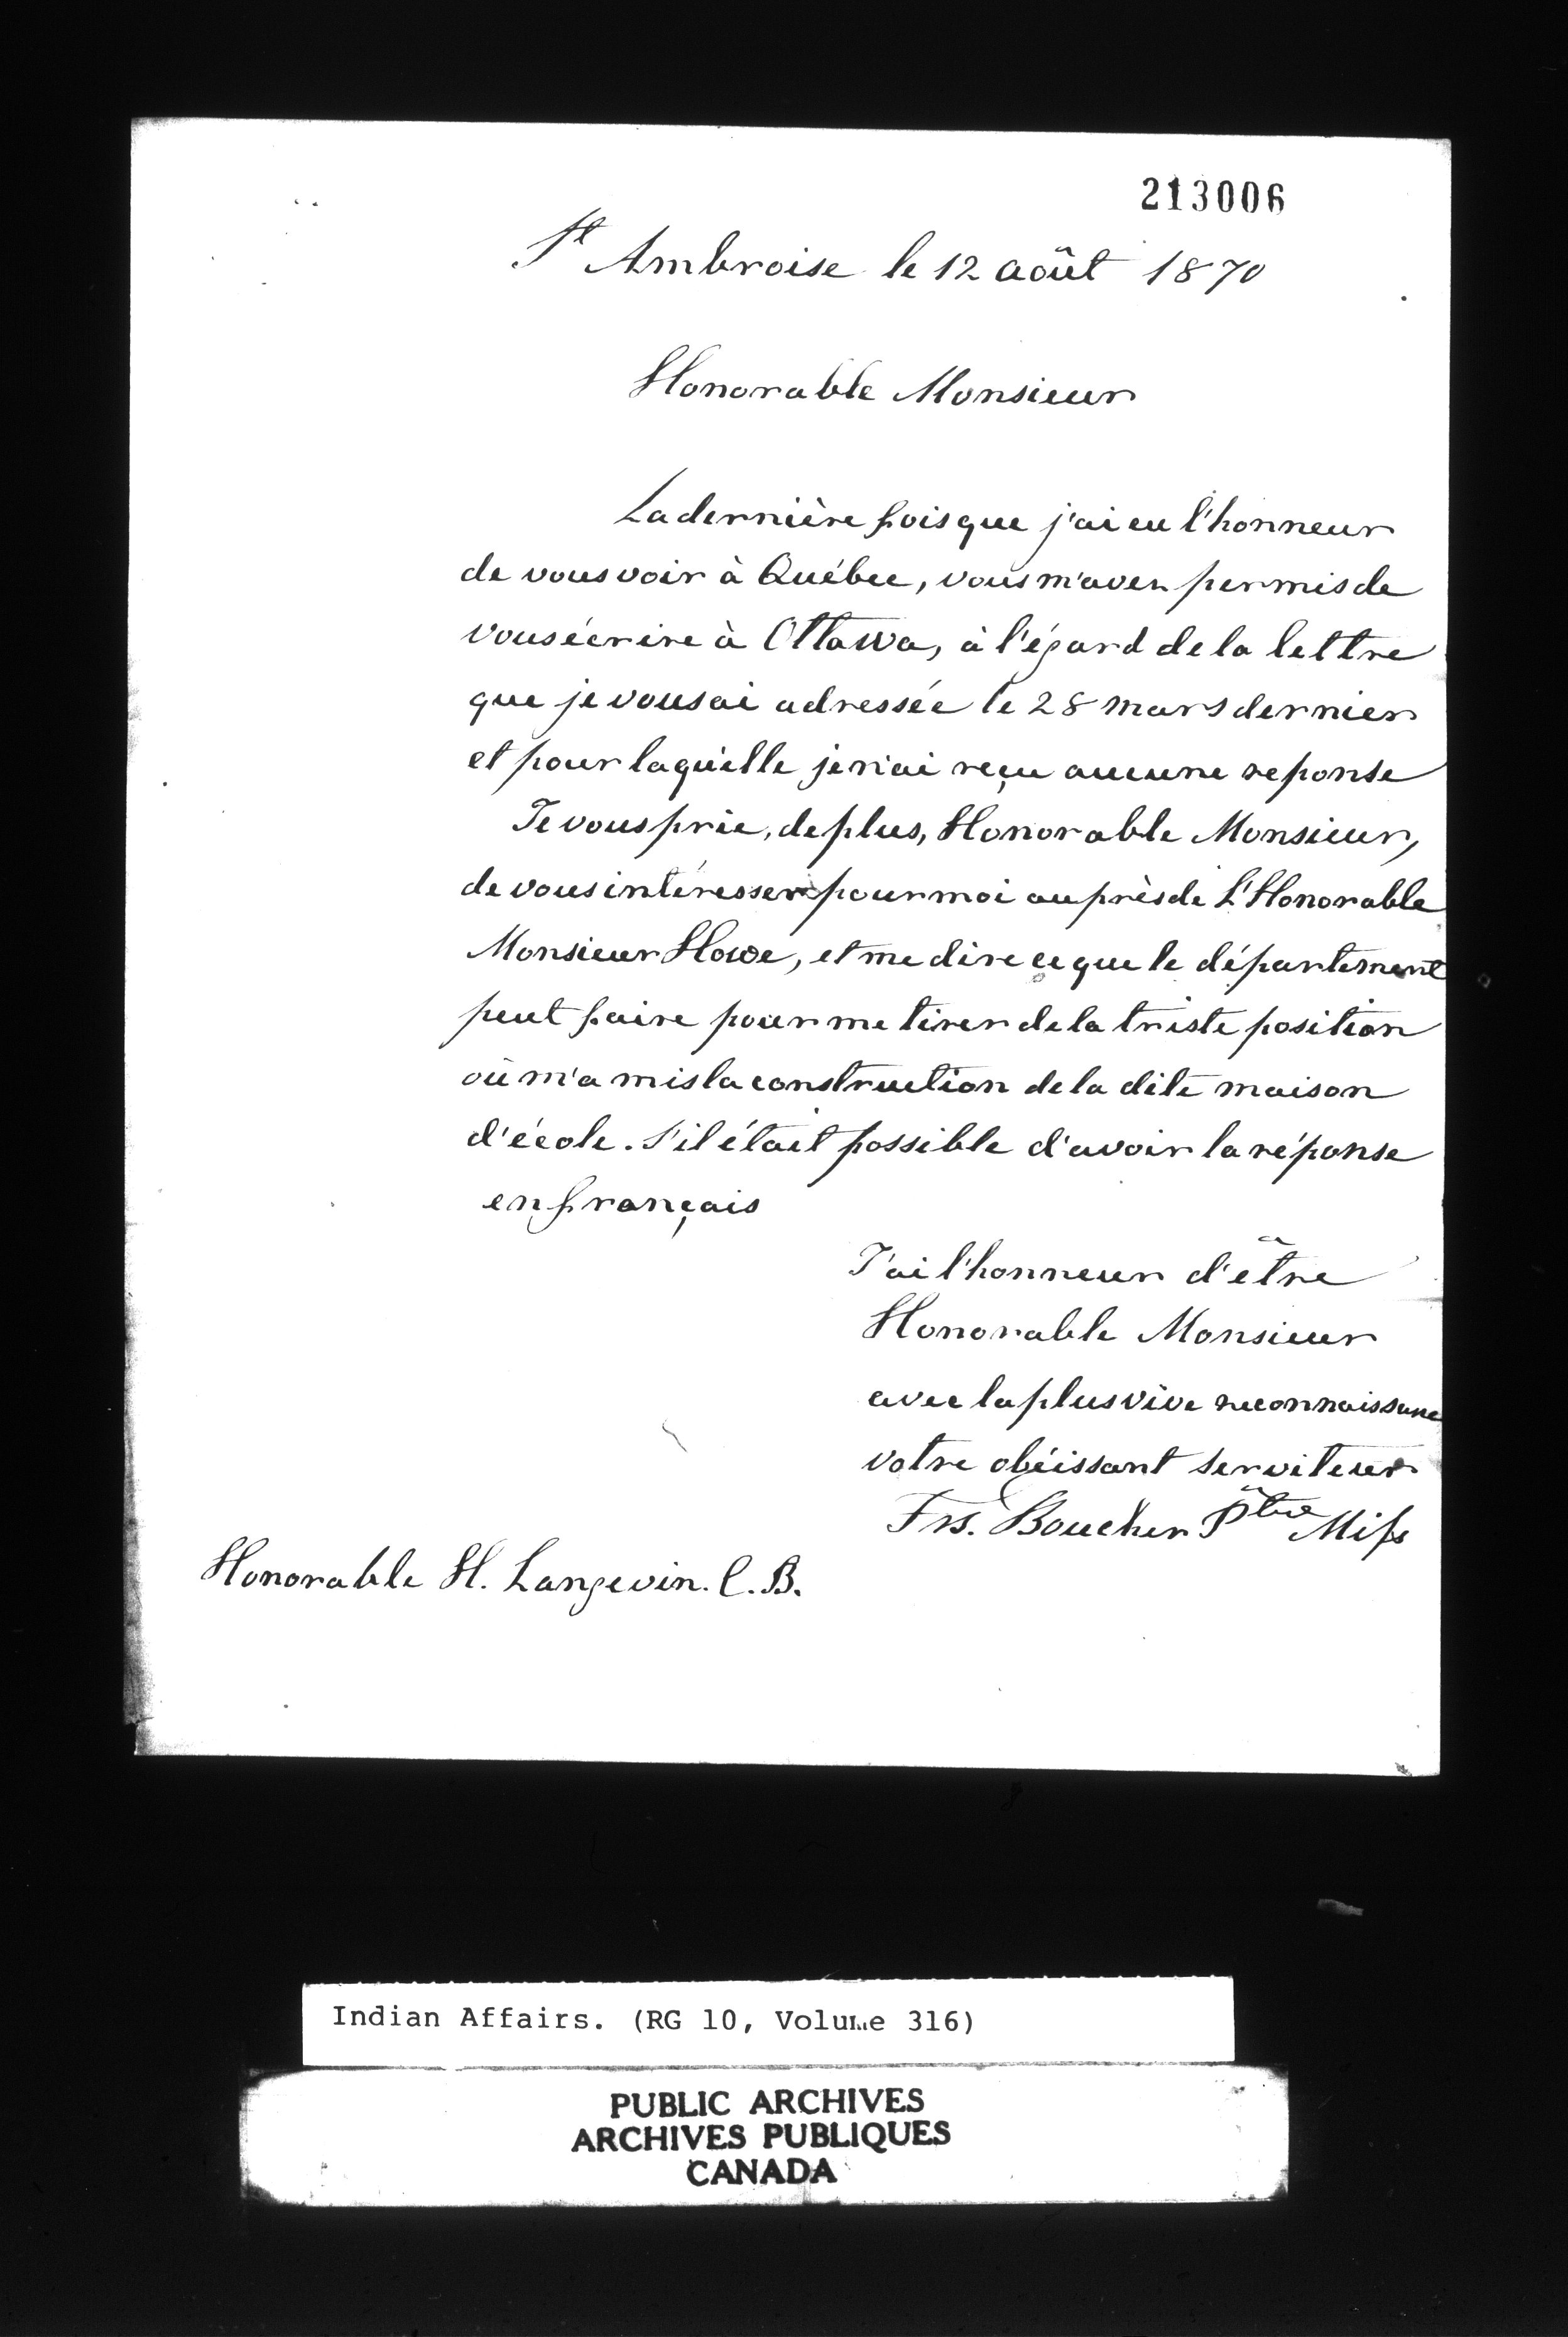 213006
St Ambroise le 12 août 1870
Honorable Monsieur
La dernière fois que j'ai eu l'honneur
de vous voir à Québec, vous m'avez permis de
vous écrire à Ottawa, à l'égard de la lettre
que je vous ai adressée le 28 mars dernier
et pour laquelle je n'ai reçu aucune reponse
Je vous prie, de plus, Honorable Monsieur,
de vous intéresser pour moi auprès de L'Honorable
Monsieur Howe, et me dire ce que le département
peut faire pour me tirer de la triste position
où m'a mis la construction de la dite maison
d'école. S'il était possible d'avoir la réponse
en français
J'ai l'honneur d'être
Honorable Monsieur
avec la plus vive reconnaissance
votre obéissant serviteur
Frs. Boucher Ptre Miss
Honorable H. Langevin. C. B.
Indian Affairs. (RG 10, Volume 316)
PUBLIC ARCHIVES
ARCHIVES PUBLIQUES
CANADA